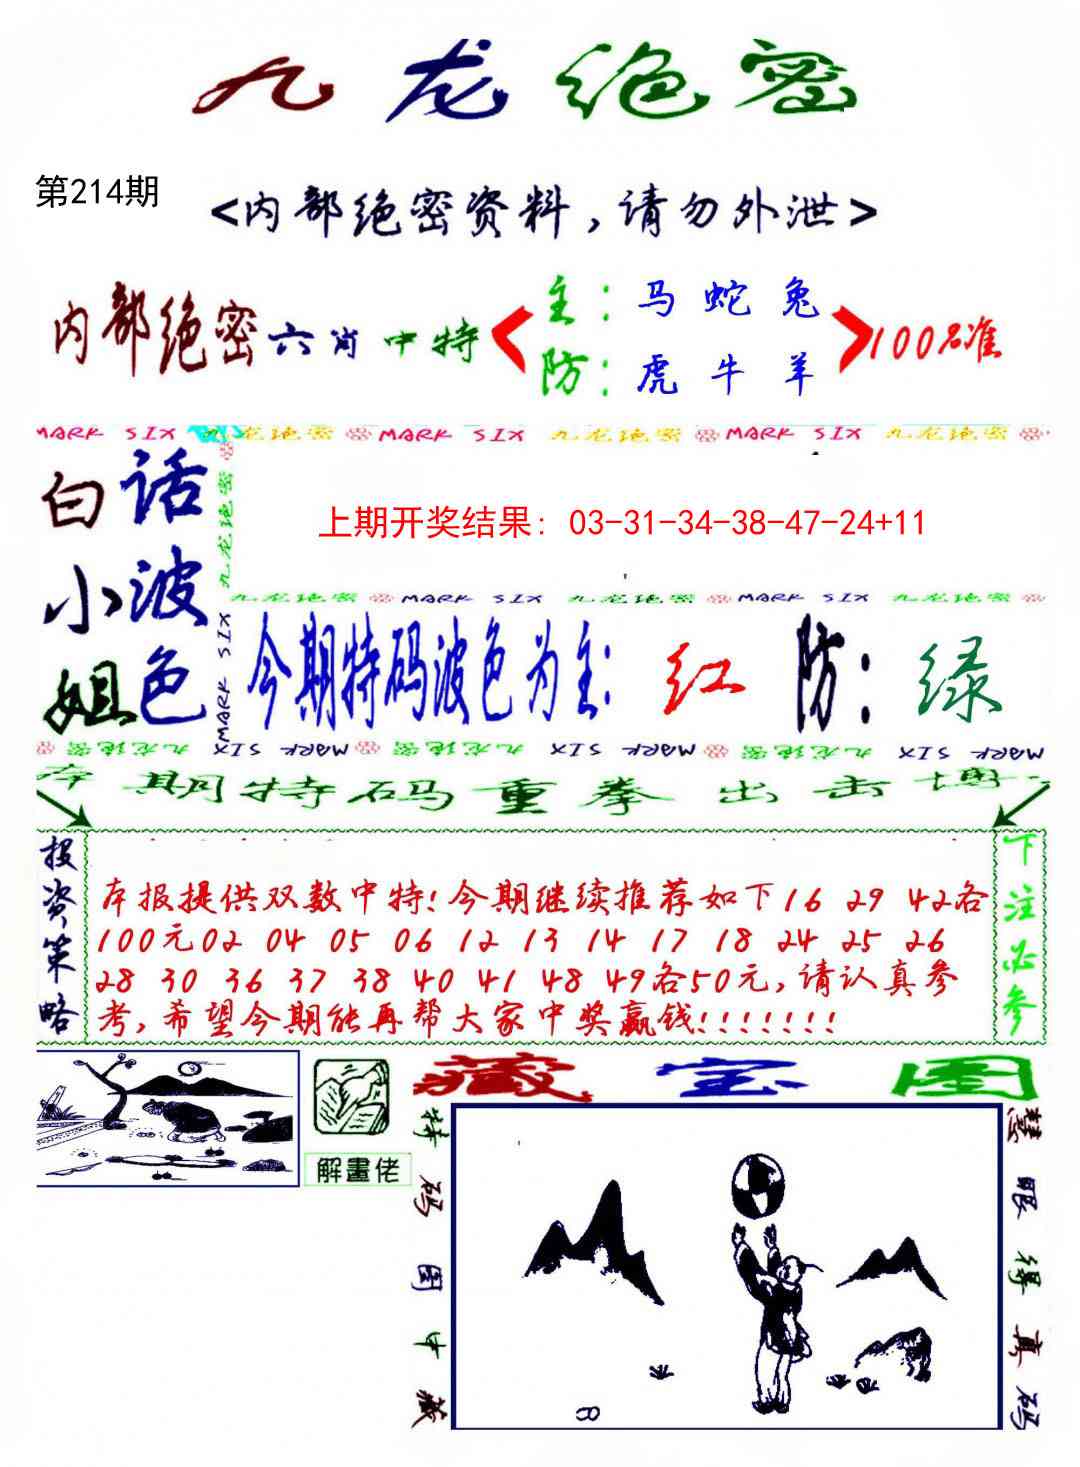 九龙绝密
第214期
<内部绝密资料,请勿外泄>
内部绝密六肖中特
主:马蛇兔
防:虎牛羊
100%准
MARK SIX 九龙绝密 MARK SIX 九龙绝密 MARK SIX 九龙绝密
白话
小波
姐色
九龙绝密 MARK SIX
上期开奖结果: 03-31-34-38-47-24+11
九龙绝密 MARK SIX 九龙绝密 MARK SIX 九龙绝密
今期特码波色为主: 红 防: 绿
MARK SIX 九龙绝密 MARK SIX 九龙绝密 MARK SIX 九龙绝密
本期特码重拳出击博
投资策略
本报提供双数中特!今期继续推荐如下16 29 42各
100元02 04 05 06 12 13 14 17 18 24 25 26
28 30 36 37 38 40 41 48 49各50元,请认真参
考,希望今期能再帮大家中奖赢钱!!!!!!!
下注必参
解畫佬
藏宝图
特码图中藏
慧眼得真码